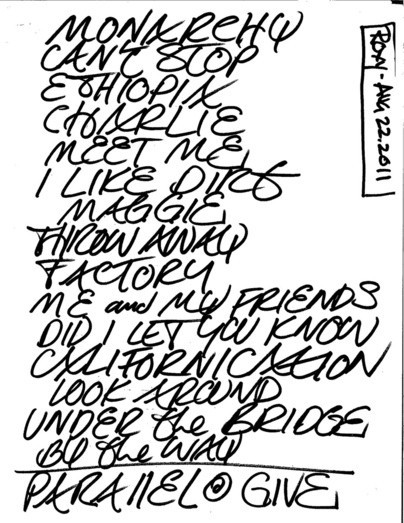 MONARCHY
CAN'T STOP
ETHIOPIA
CHARLIE
MEET ME
I LIKE DIRT
MAGGIE
THROW AWAY
FACTORY
ME and MY FRIENDS
DID I LET YOU KNOW
CALIFORNICATION
LOOK AROUND
UNDER the BRIDGE
BY the WAY
PARALLEL GIVE
ROXY - AUG 22.2011